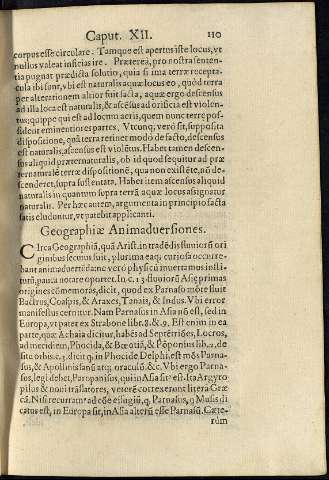 Caput. XII. 110
corpus esse circulare. Tamque est apertus iste locus, vt
nullos valeat inficias ire. Præterea, pro nostra senten-
tia pugnat prædicta solutio, quia si ima terræ recepta-
cula ibi sunt, vbi est naturalis aquæ locus eo, quòd terra
per alterationem altior fuit facta, aquæ ergo descensus
ad illa loca est naturalis, & ascẽsus ad orificia est violen-
tus, quippe qui est ad locum aeris, quem nunc terre pos-
sident eminentiores partes. Vtcunq; verò sit, supposita
dispositione, quã terra retinet modò de facto, descensus
est naturalis, ascensus est violẽtus. Habet tamen descen-
sus aliquid præternaturalis, ob id quod sequitur ad præ-
ternaturalẽ terræ dispositionẽ, qua non existẽte, nõ de-
scenderet, supra sustentata. Habet item ascensus aliquid
naturalis in quantum supra terrã aquæ locus assignatur
naturalis. Per hæc autem, argumenta in principio facta
satis eluduntur, vt patebit applicanti.
Geographiæ Animaduersiones.
CIrca Geographiã, quã Arist. in tradẽdis fluuiorũ ori
ginibus secutus fuit, plurima eaq; curiosa occurre-
bant animaduertẽda: ne verò physicũ inuertamus insti-
tutũ, pauca notare oportet. In c. 13 fluuiorũ Asię primas
origines cõmemoras, dicit, quod ex Parnaso mõte fluũt
Bactrus, Coaspis, & Araxes, Tanais, & Indus. Vbi error
manifestus cernitur. Nam Parnasus in Asia nõ est, sed in
Europa, vt patet ex Strabone libr. 8. & 9. Est enim in ea
parte, quæ Achaia dicitur, habẽs ad Septẽtriõẽs, Locros,
ad meridiem, Phocida, & Bœotiã, & Põponius lib. 2. de
situ orbis c. 3. dicit q̃. in Phocide Delphi. est mõs Parna-
sus, & Apollinis fanũ atq; oraculũ. &c. Vbi ergo Parna-
sus, legi debet, Paropanisus, qui in Asia sit ꝰ est. Ita Argyro
pilus & noui translatores, veterẽ correxerunt litera Græ
ca. Nisi recurramꝰ ad cõẽ effugiũ, q̃. Parnasus, q̃ Musis di
catus est, in Europa sit, in Asia alterũ esse Parnasũ. Cæte-
rùm